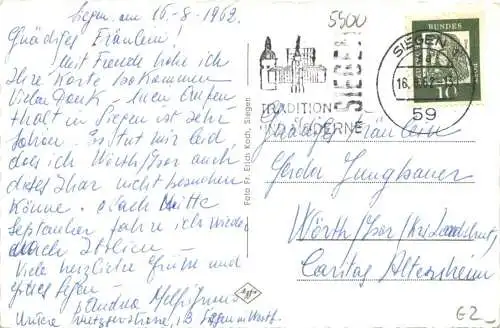 Siegen, am 16.-8-1962.
Gnädiges Fräulein!
Mit Freude habe ich
Ihre Karte bekommen
Vielen Dank. Mein Aufen
thalt in Siegen ist sehr
schön. Es tut mir leid,
das ich Wörth/Isar auch
dieses Jahr nicht besuchen
könne. Nach Mitte
September fahre ich wieder
durch Italien
Viele herzliche Grüsse und
Gottes Segen.
Andrea
Untere Metzgerstrasse, 13 Siegen Westf.
Foto Fr. Erich Koch, Siegen
Agfa
5900
TRADITION
U. MODERNE
SIEGEN
SIEGEN
16.
59
DEUTSCHE
BUNDES
POST
10
Gnädiges Fräulein
Gerda Jungbauer
Wörth/Isar (Krs. Landshut)
Caritas Altersheim
G2-